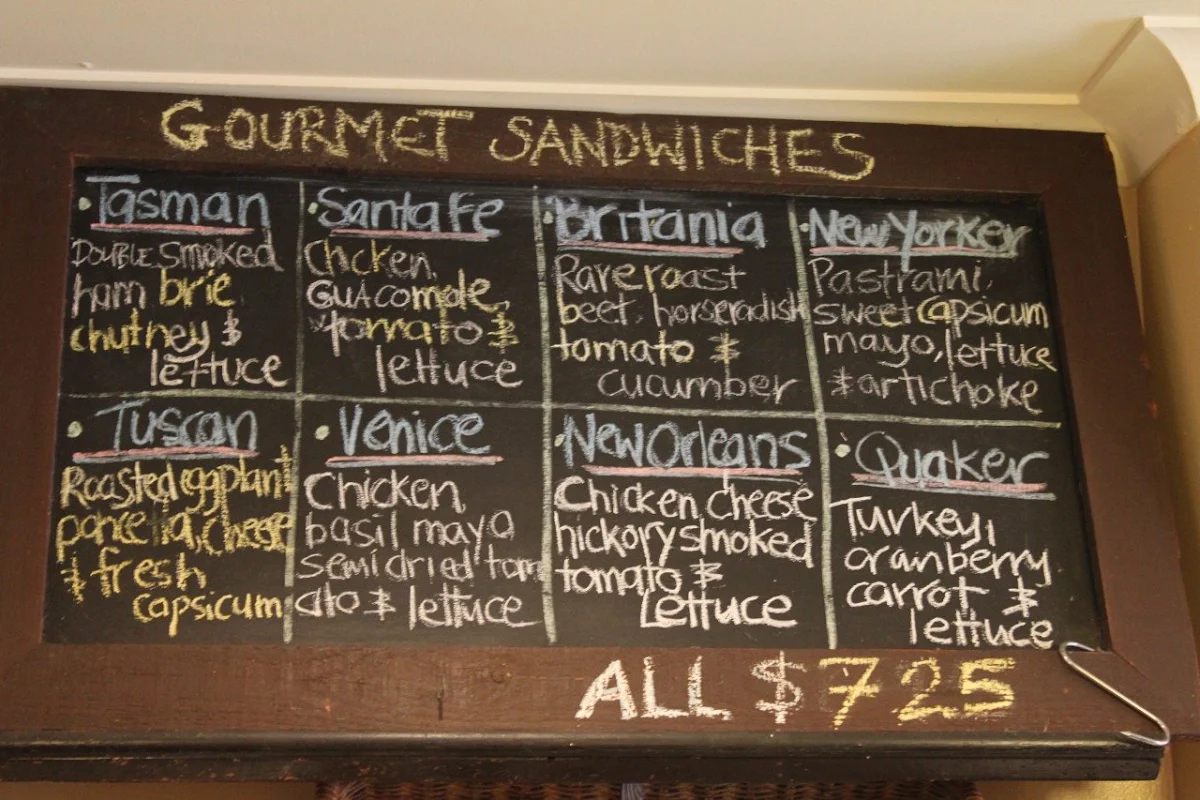 GOURMET SANDWICHES
• Tasman
DOUBLE Smoked
ham brie
chutney &
lettuce
• Santa Fe
Chcken,
GUACOMOLE,
tomato &
lettuce
• Britania
Rare roast
beef, horseradish
tomato &
cucumber
• New Yorker
Pastrami,
sweet capsicum
mayo, lettuce
& artichoke
• Tuscan
Roasted eggplant
cheese
& fresh
capsicum
• Venice
Chicken,
basil mayo
semidried tom
ato & lettuce
• New Orleans
Chicken, cheese
hickory smoked
tomato &
Lettuce
• Quaker
Turkey,
cranberry
carrot &
lettuce
ALL $7 25